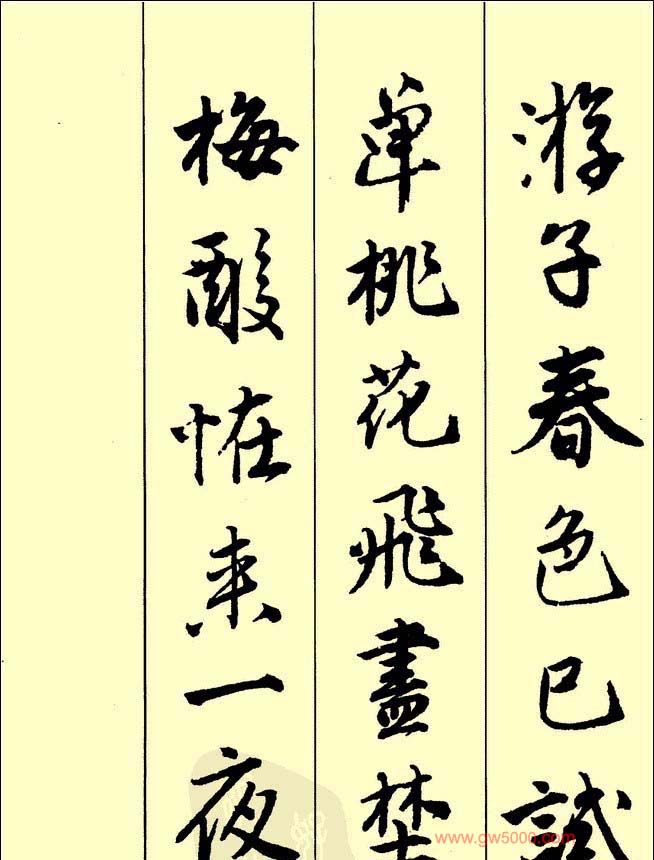 游子春色已試
單桃花飛盡埜
梅酸恠来一夜
www.gw5000.com